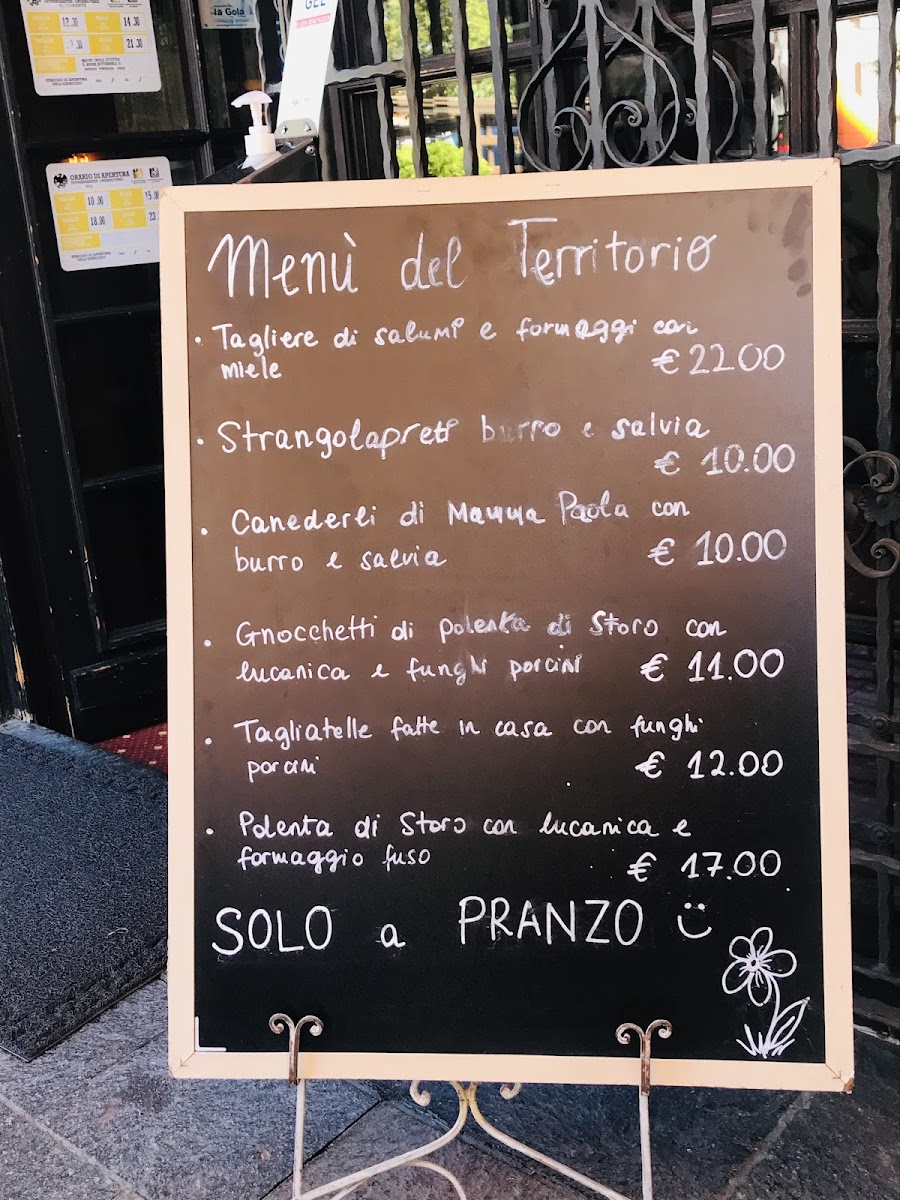 la Gola
GEL
12.30
14.30
21.30
ORARIO DI APERTURA
10.00
15.0
18.30
23
Menù del Territorio
· Tagliere di salumi e formaggi con
miele € 22.00
· Strangolapreti burro e salvia
€ 10.00
· Canederli di Mamma Paola con
burro e salvia € 10.00
· Gnocchetti di polenta di Storo con
lucanica e funghi porcini € 11.00
· Tagliatelle fatte in casa con funghi
porcini € 12.00
· Polenta di Storo con lucanica e
formaggio fuso € 17.00
SOLO a PRANZO